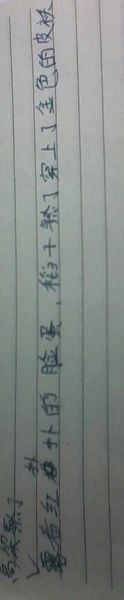 高粱熟了
露着红扑扑的脸蛋，稻子熟了穿上了金色的皮袄